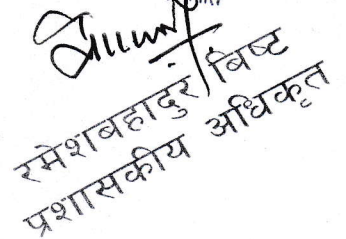 रमेशबहादुर बिष्ट
प्रशासकीय अधिकृत